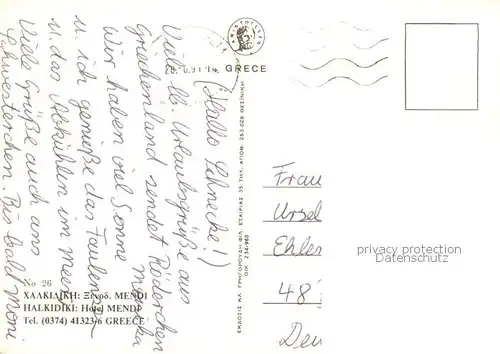 (Hallo Schnecke!)
Viele lb. Urlaubsgrüße aus
Griechenland sendet Röderchen
Wir haben viel Sonne
u. ich genieße das Faulenzen
u. das Abkühlen im Meer.
Viele Grüße auch ans
Schwesterchen. Bis bald Moni
GRECE
No 26
ΧΑΛΚΙΔΙΚΗ: Ξενοδ. MENDI
HALKIDIKI: Hotel MENDI
Tel. (0374) 41323/6 GREECE
ΕΚΔΟΣΙΣ ΚΑ ΓΡΗΓΟΡΟΥΔΗ ΦΙΛ. ΕΤΑΙΡΙΑΣ 35 ΤΗΛ. ΑΠΟΘ. 263-029 ΘΕΣ/ΝΙΚΗ
ΟΙΚ. 234/968
Frau
Ursel
Ehlen
48
Deu
privacy protection
Datenschutz